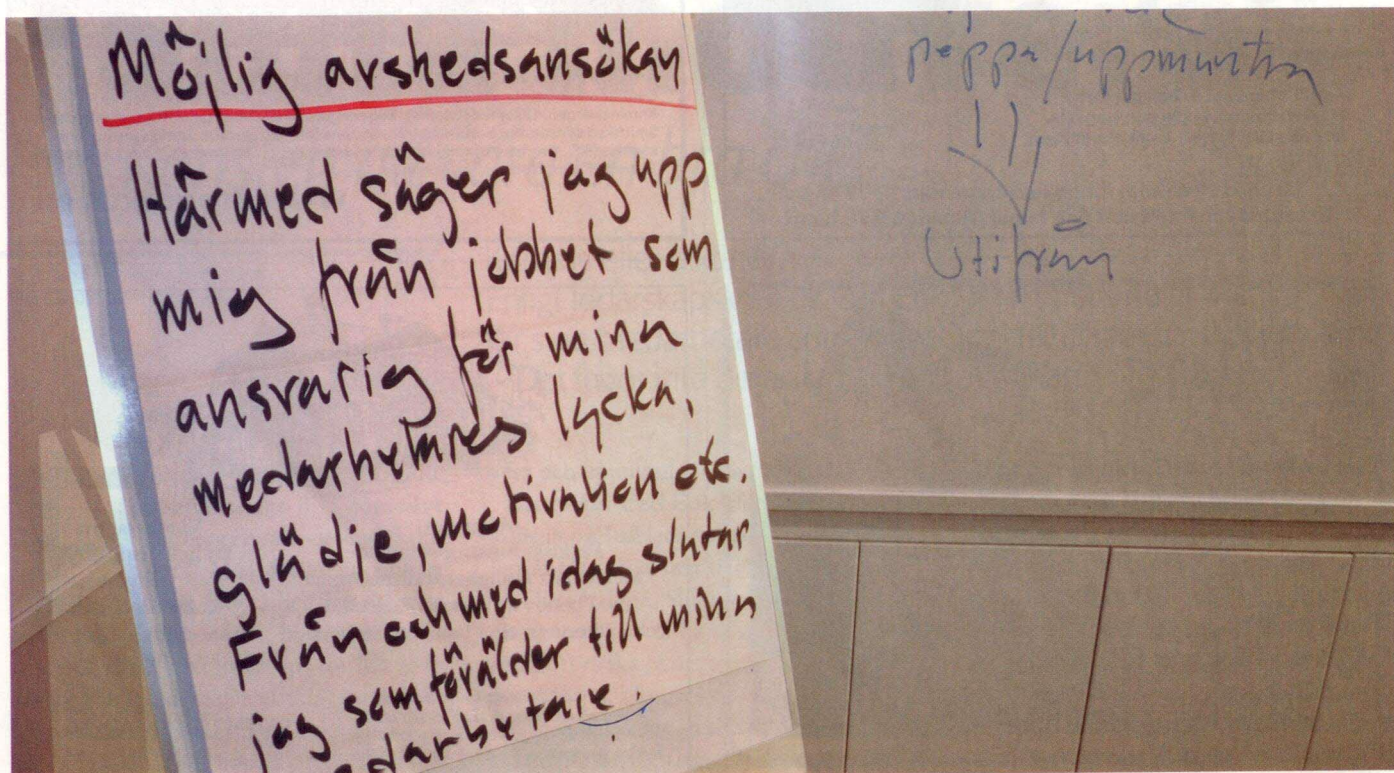 Möjlig avskedsansökan
Härmed säger jag upp
mig från jobbet som
ansvarig för mina
medarbetares lycka,
glädje, motivation etc.
Från och med idag slutar
jag som förälder till mina
medarbetare.
peppa/uppmuntra
Utifrån